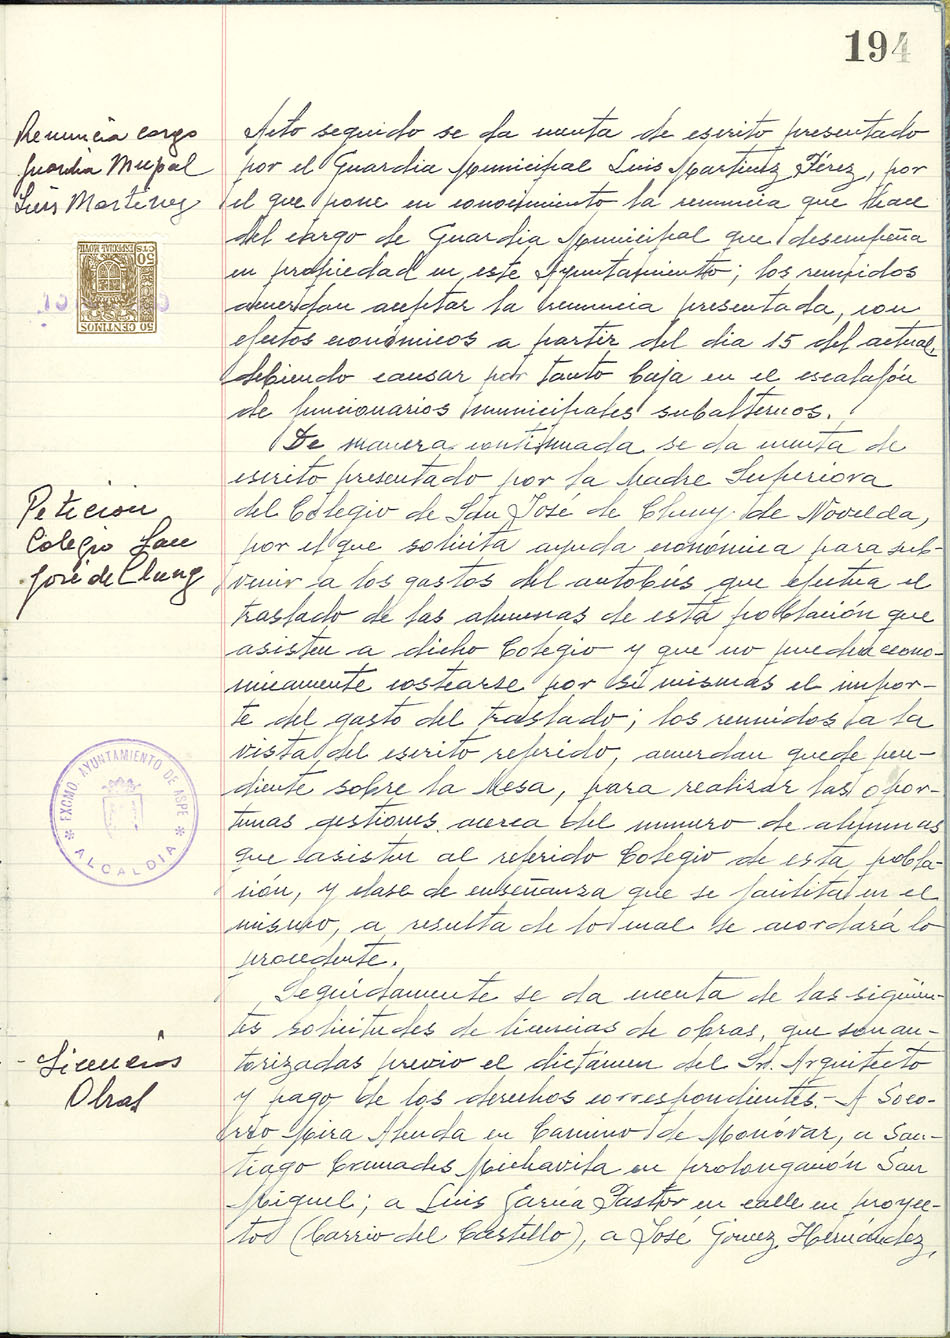 194
Renuncia cargo
guardia Mupal
Luis Martinez
ESPECIAL MOVIL
50 CTS
50 CENTIMOS
Acto seguido se da cuenta de escrito presentado
por el Guardia Municipal Luis Martinez Pérez, por
el que pone en conocimiento la renuncia que hace
del cargo de Guardia Municipal que desempeña
en propiedad en este Ayuntamiento; los reunidos
acuerdan aceptar la renuncia presentada, con
efectos económicos a partir del dia 15 del actual,
debiendo causar por tanto baja en el escalafón
de funcionarios municipales subalternos.
De manera continuada se da cuenta de
escrito presentado por la Madre Superiora
del Colegio de San José de Cluny de Novelda,
por el que solicita ayuda económica para sub-
venir a los gastos del autobús que efectua el
traslado de las alumnas de esta población que
asisten a dicho Colegio y que no pueden econo-
micamente costearse por sí mismas el impor-
te del gasto del traslado; los reunidos a la
vista del escrito referido, acuerdan quede pen-
diente sobre la Mesa, para realizar las opor-
tunas gestiones acerca del numero de alumnas
que asisten al referido Colegio de esta pobla-
ción, y clase de enseñanza que se facilita en el
mismo, a resulta de lo cual se acordará lo
procedente.
Peticion
Colegio San
José de Cluny
EXCMO. AYUNTAMIENTO DE ASPE
* ALCALDIA *
Seguidamente se da cuenta de las siguien-
tes solicitudes de licencias de obras, que son au-
torizadas previo el dictámen del Sr. Arquitecto
y pago de los derechos correspondientes.- A Soco-
rro Mira Abenda en Camino de Monóvar, a San-
tiago Cremades Michavila en prolongación San
Miguel; a Luis García Pastor en calle en proyec-
to (barrio del Castillo), a José Gomez Hernández,
- Licencias
Obras